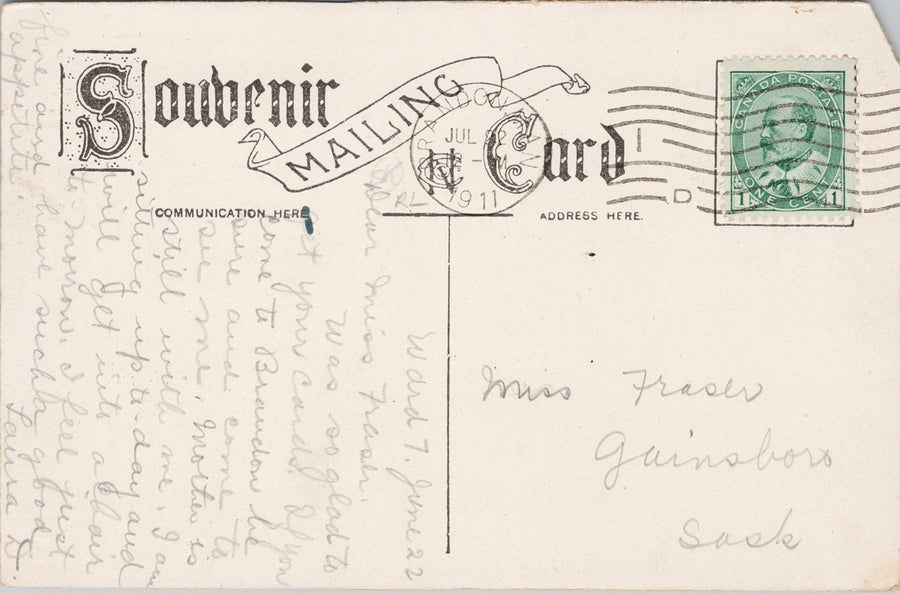 Souvenir
MAILING
Card
BRANDON MAN
JUL
1911
CANADA POSTAGE
1 ONE CENT 1
D
COMMUNICATION HERE
ADDRESS HERE.
Ward 7. June 22
Dear Miss Fraser,
Was so glad to
get your card. If you
come to Brandon be
sure and come to
see me. Mother is
still with me. I am
sitting up to-day and
will get into a chair
to morrow. I feel just
fine and have such good
appetite.
Laura K.
Miss Fraser
Gainsboro
Sask